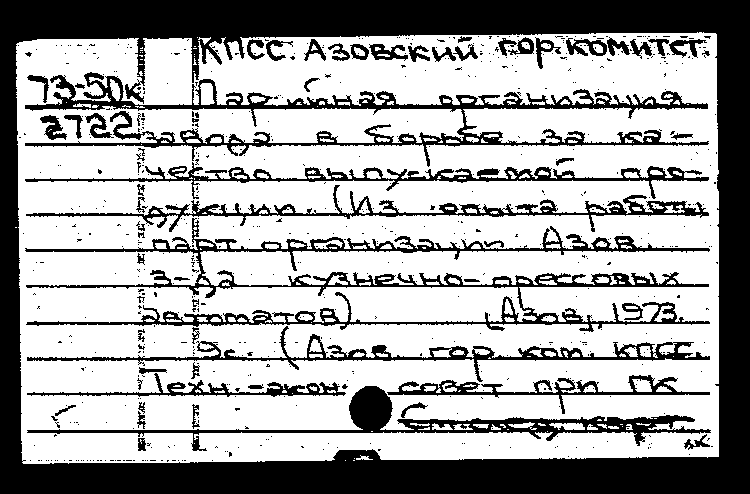 КПСС. Азовский гор. комитет.
73-50к
Партийная организация
2722
завода в борьбе за ка-
чество выпускаемой про-
дукции. (Из опыта работы
парт. организации Азов.
з-да кузнечно-прессовых
автоматов). [Азов], 1973.
9с. (Азов. гор. ком. КПСС.
Техн.-экон. совет при ГК
См. след. карт.